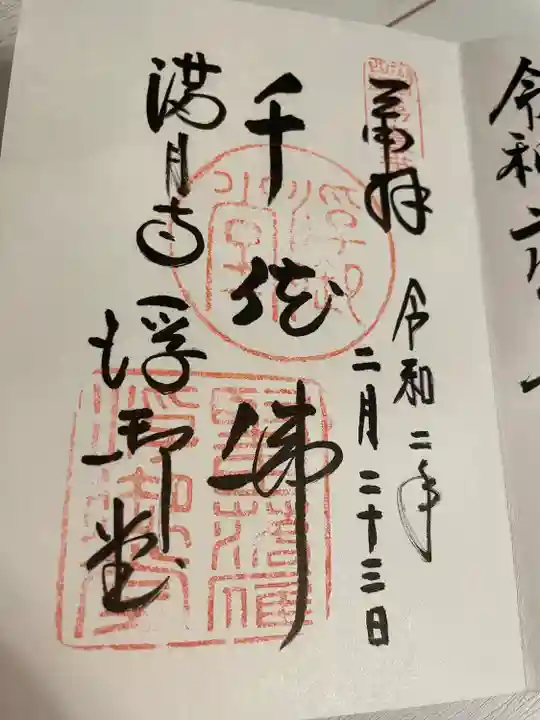 令和二年
奉拝
令和二年
二月二十三日
千体佛
満月寺
浮御堂